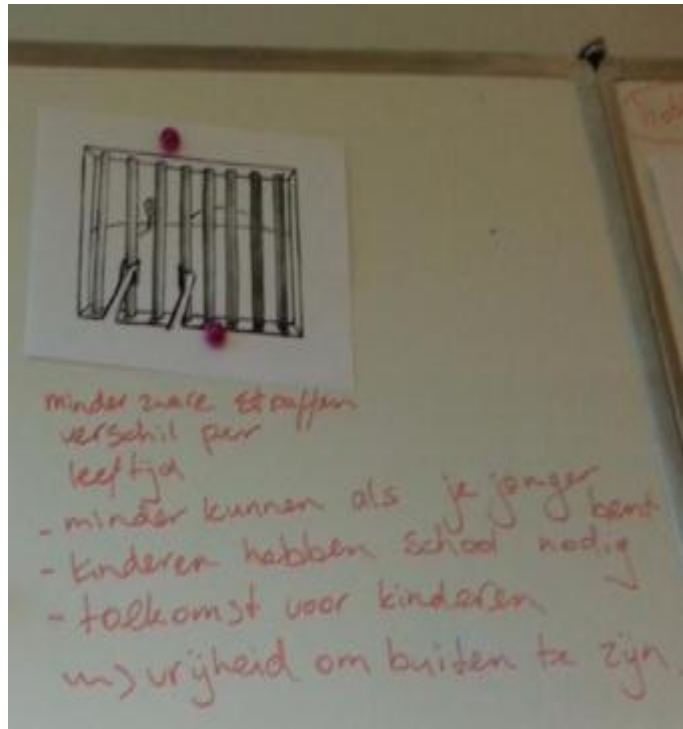 minder zware straffen
verschil per
leeftijd
- minder kunnen als je jonger bent
- kinderen hebben school nodig
- toekomst voor kinderen
vrijheid om buiten te zijn